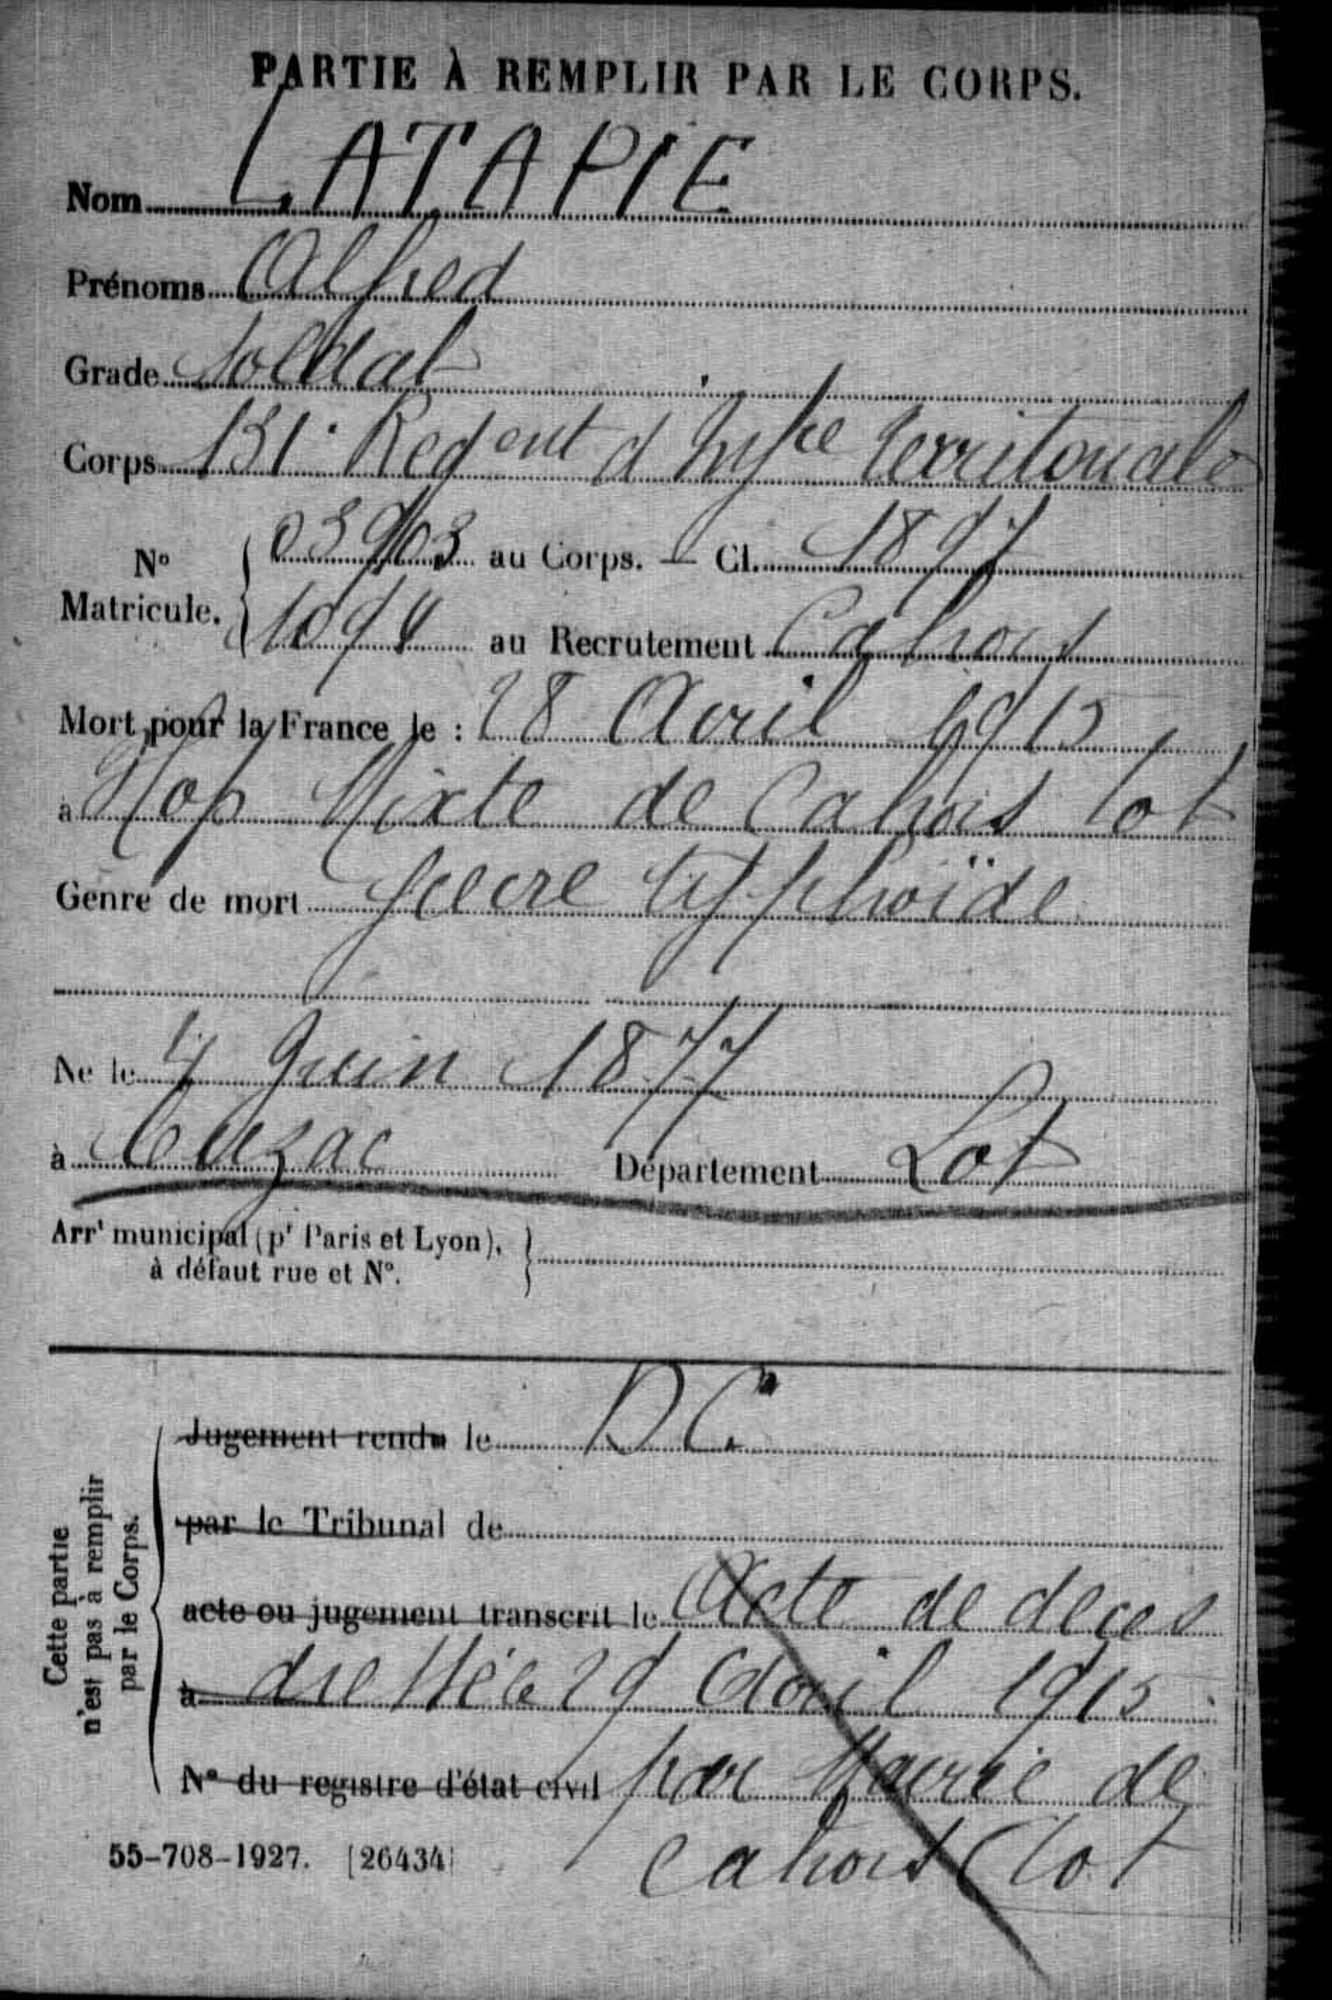 PARTIE À REMPLIR PAR LE CORPS.
Nom LATAPIE
Prénoms Alfred
Grade Soldat
Corps 131e Reg ent d'Infce territoriale
No Matricule. 03903 au Corps. — Cl. 1897
1094 au Recrutement Cahors
Mort pour la France le : 28 Avril 1915
à Hop Mixte de Cahors Lot
Genre de mort fièvre typhoïde
Né le 4 Juin 1877
à Cuzac Département Lot
Arrt municipal (pr Paris et Lyon), à défaut rue et No.
Cette partie n'est pas à remplir par le Corps.
Jugement rendu le DC
par le Tribunal de
acte ou jugement transcrit le Acte de deces
à dressé le 29 Avril 1915
No du registre d'état civil par Mairie de
Cahors (Lot
55-708-1927. [26434]